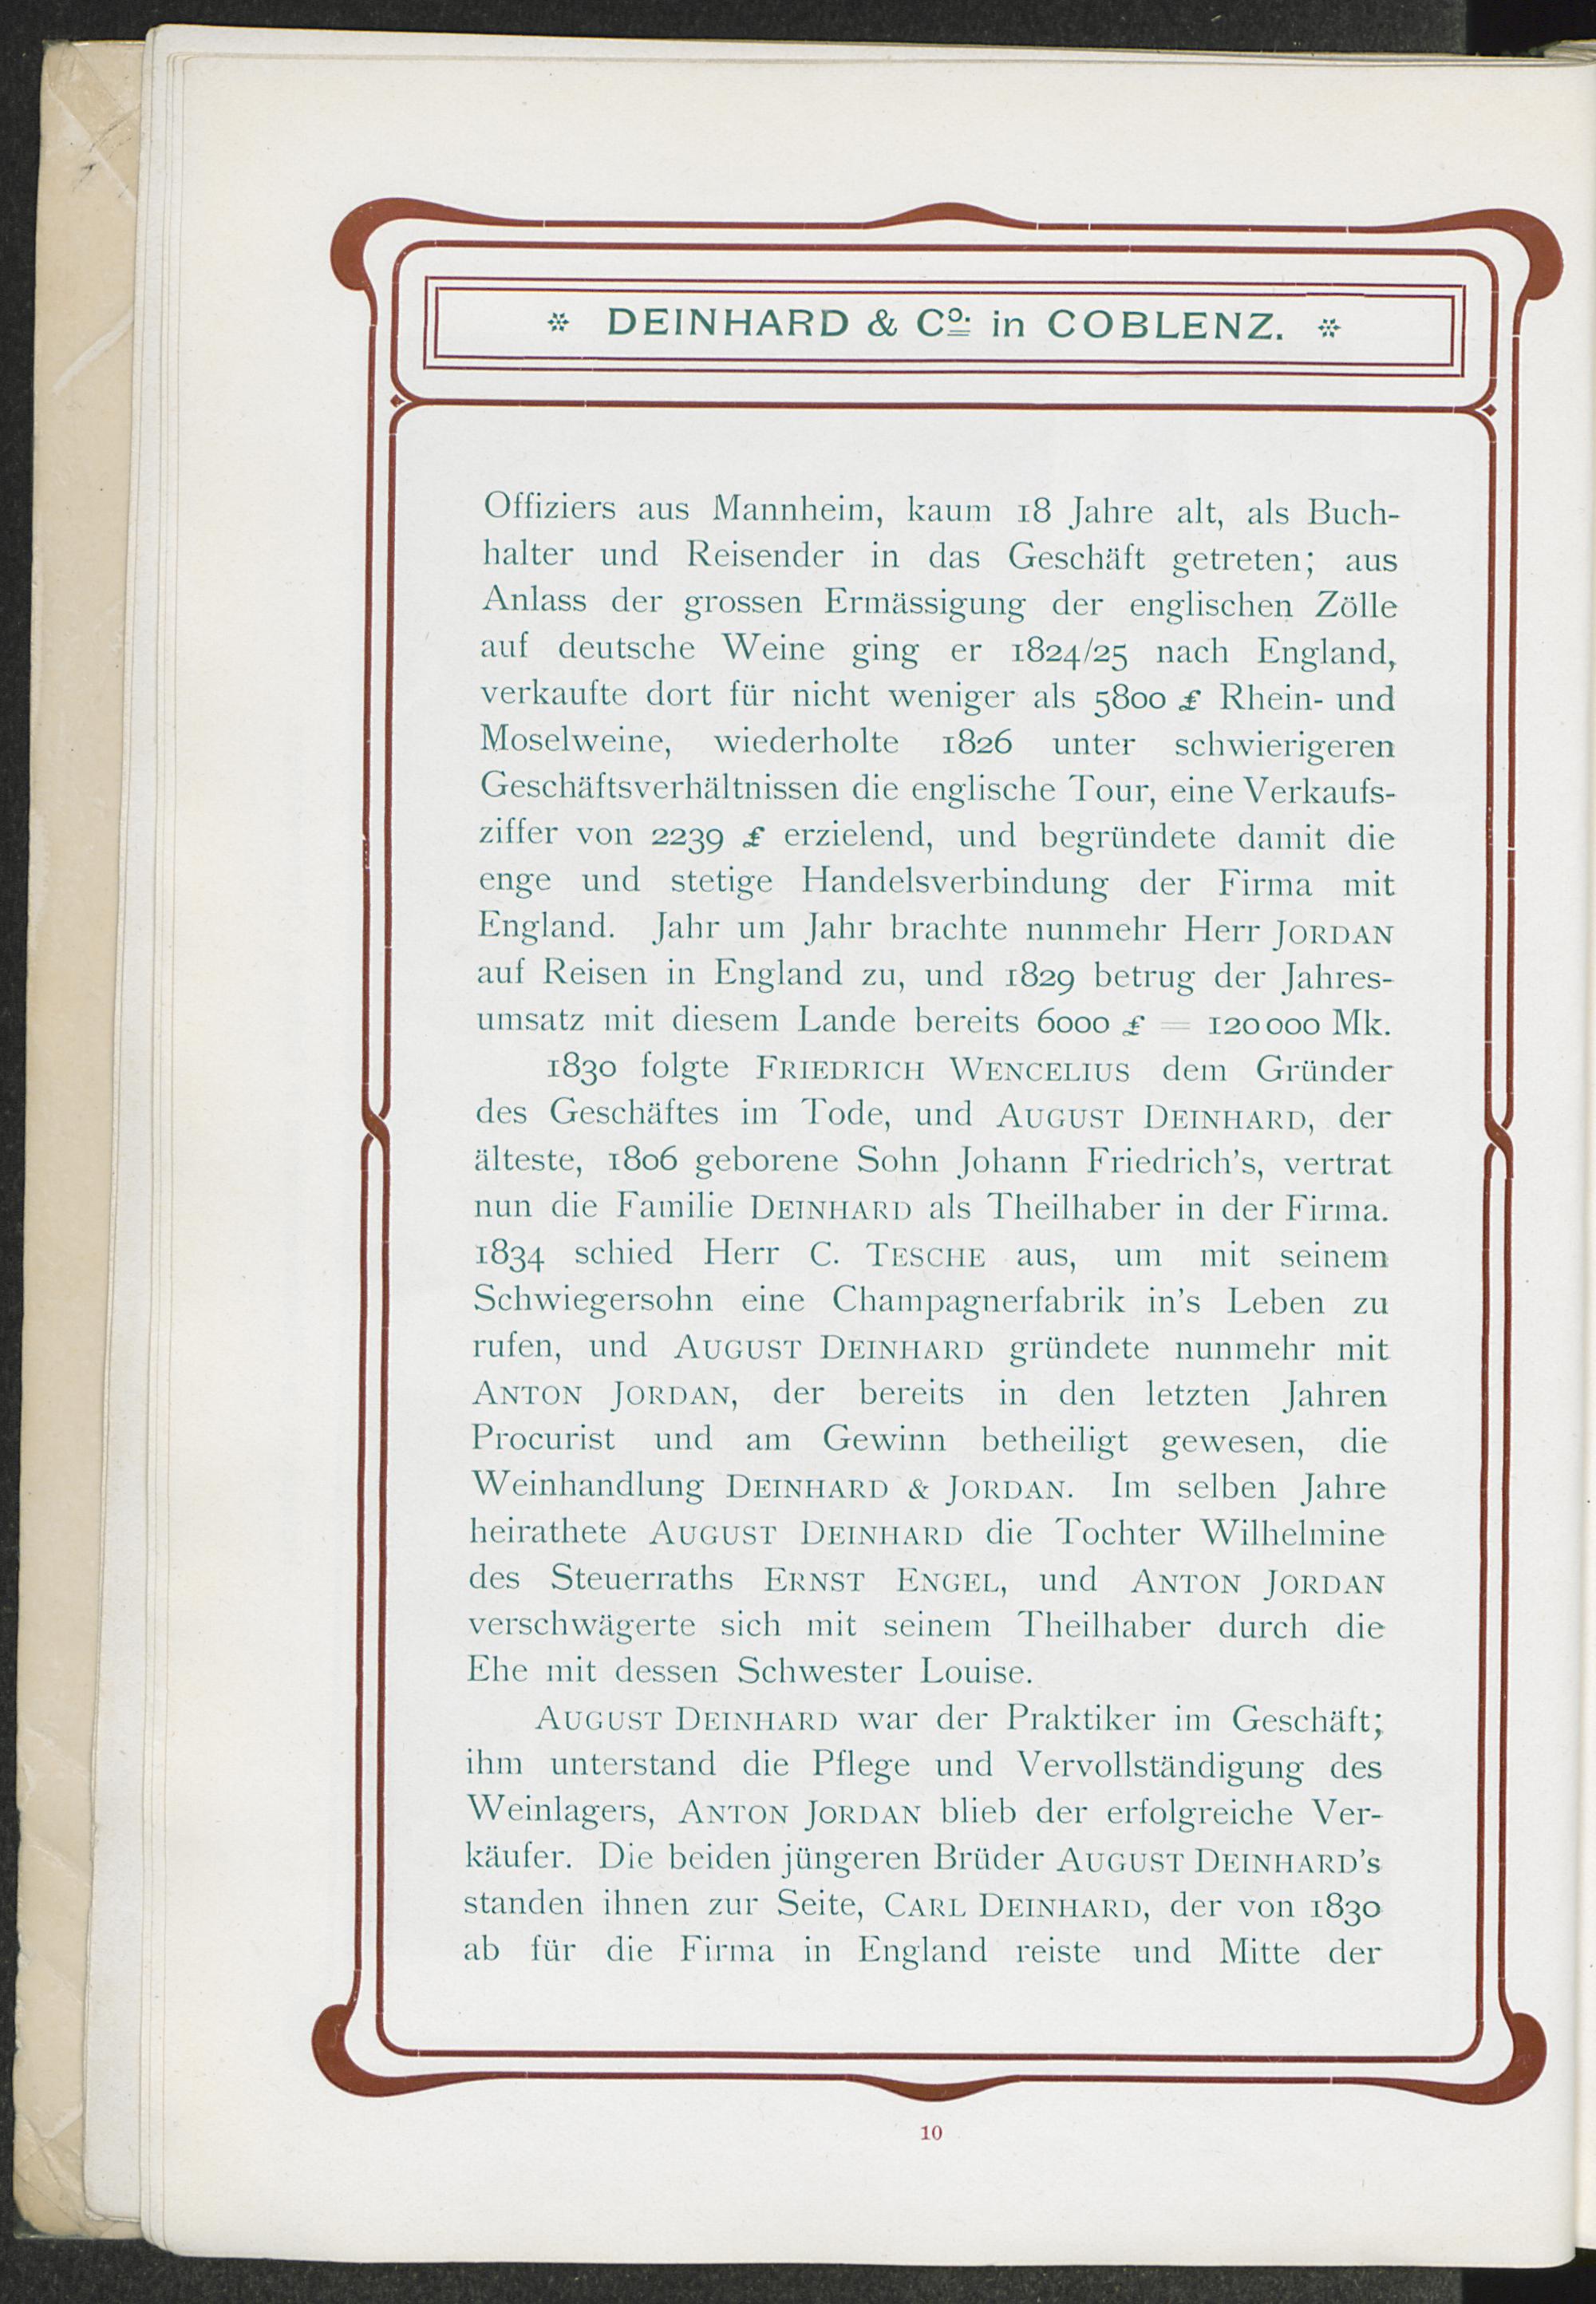 * DEINHARD & Co. in COBLENZ. *
Offiziers aus Mannheim, kaum 18 Jahre alt, als Buch-
halter und Reisender in das Geschäft getreten; aus
Anlass der grossen Ermässigung der englischen Zölle
auf deutsche Weine ging er 1824/25 nach England,
verkaufte dort für nicht weniger als 5800 £ Rhein- und
Moselweine, wiederholte 1826 unter schwierigeren
Geschäftsverhältnissen die englische Tour, eine Verkaufs-
ziffer von 2239 £ erzielend, und begründete damit die
enge und stetige Handelsverbindung der Firma mit
England. Jahr um Jahr brachte nunmehr Herr JORDAN
auf Reisen in England zu, und 1829 betrug der Jahres-
umsatz mit diesem Lande bereits 6000 £ = 120 000 Mk.
1830 folgte FRIEDRICH WENCELIUS dem Gründer
des Geschäftes im Tode, und AUGUST DEINHARD, der
älteste, 1806 geborene Sohn Johann Friedrich's, vertrat
nun die Familie DEINHARD als Theilhaber in der Firma.
1834 schied Herr C. TESCHE aus, um mit seinem
Schwiegersohn eine Champagnerfabrik in's Leben zu
rufen, und AUGUST DEINHARD gründete nunmehr mit
ANTON JORDAN, der bereits in den letzten Jahren
Procurist und am Gewinn betheiligt gewesen, die
Weinhandlung DEINHARD & JORDAN. Im selben Jahre
heirathete AUGUST DEINHARD die Tochter Wilhelmine
des Steuerraths ERNST ENGEL, und ANTON JORDAN
verschwägerte sich mit seinem Theilhaber durch die
Ehe mit dessen Schwester Louise.
AUGUST DEINHARD war der Praktiker im Geschäft;
ihm unterstand die Pflege und Vervollständigung des
Weinlagers, ANTON JORDAN blieb der erfolgreiche Ver-
käufer. Die beiden jüngeren Brüder AUGUST DEINHARD's
standen ihnen zur Seite, CARL DEINHARD, der von 1830
ab für die Firma in England reiste und Mitte der
10